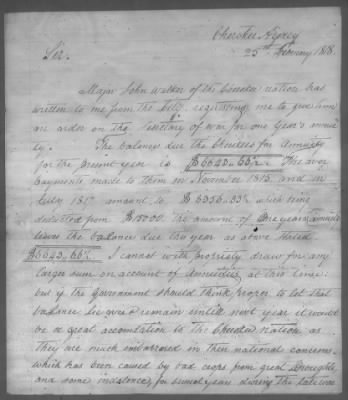 Cherokee Agency
25th February 1818.
Sir.
Major John Walker of the Cherokee nation has
written to me from the City, requesting me to give him
an order on the Secretary of war for one Year's annui
ty. The balance due the Cherokees for Annuity
for the present year is $6643.66 2/3. The over
payments made to them in November 1815. and in
July 1817 amount to $3356.33 1/3 which being
deducted from $10000. the amount of One years annuity
leaves the balance due this year as above stated
$6643.66 2/3. I cannot with propriety draw for any
larger sum on account of annuities at this time:
but if the Government should think proper to let that
balance lie over & remain untill next year it would
be a great accomodation to the Cherokee nation as
they are much embarrassed in their national concerns.
which has been caused by bad crops from great droughts
and some instances, for several years during the late war